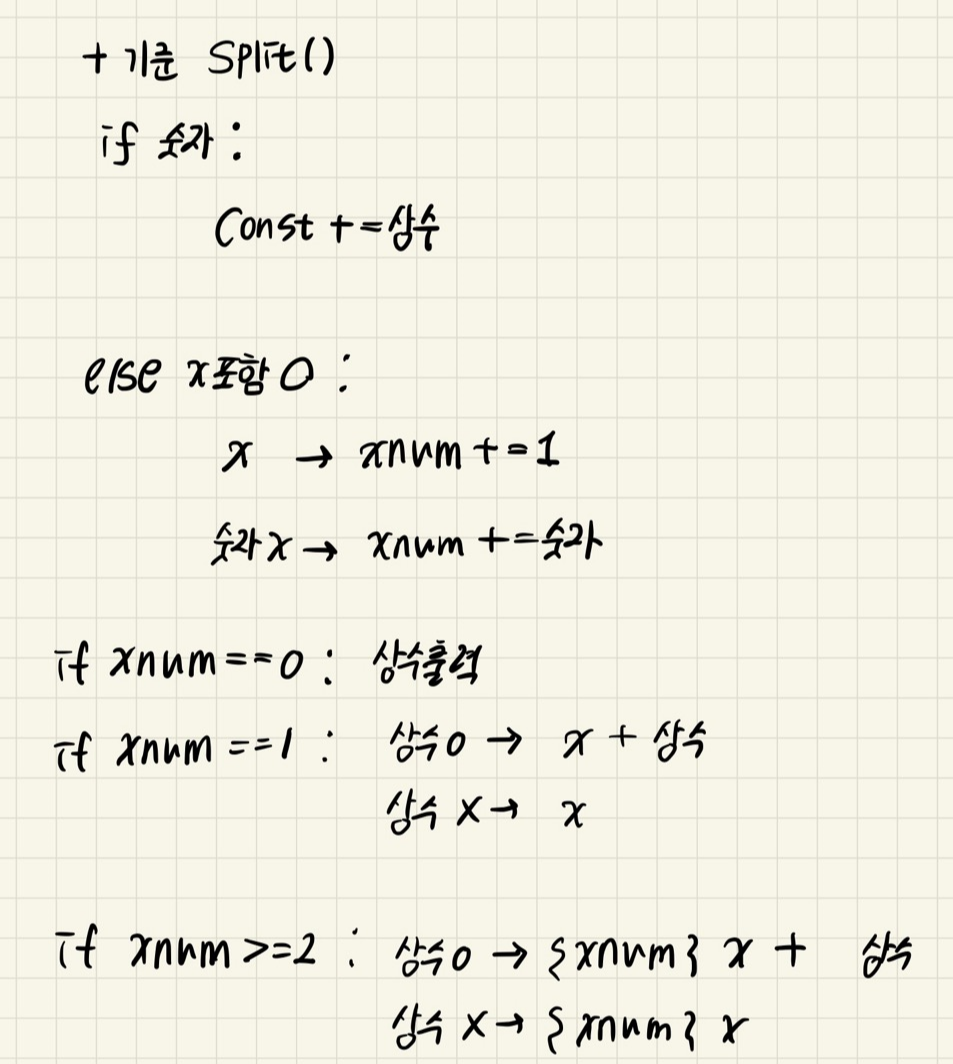 + 기준 Split()
if 숫자 :
Const += 상수
else x포함 O :
x → xnum += 1
숫자x → xnum += 숫자
if xnum == 0 : 상수출력
if xnum == 1 : 상수 O → x + 상수
상수 X → x
if xnum >= 2 : 상수 O → {xnum} x + 상수
상수 X → {xnum} x